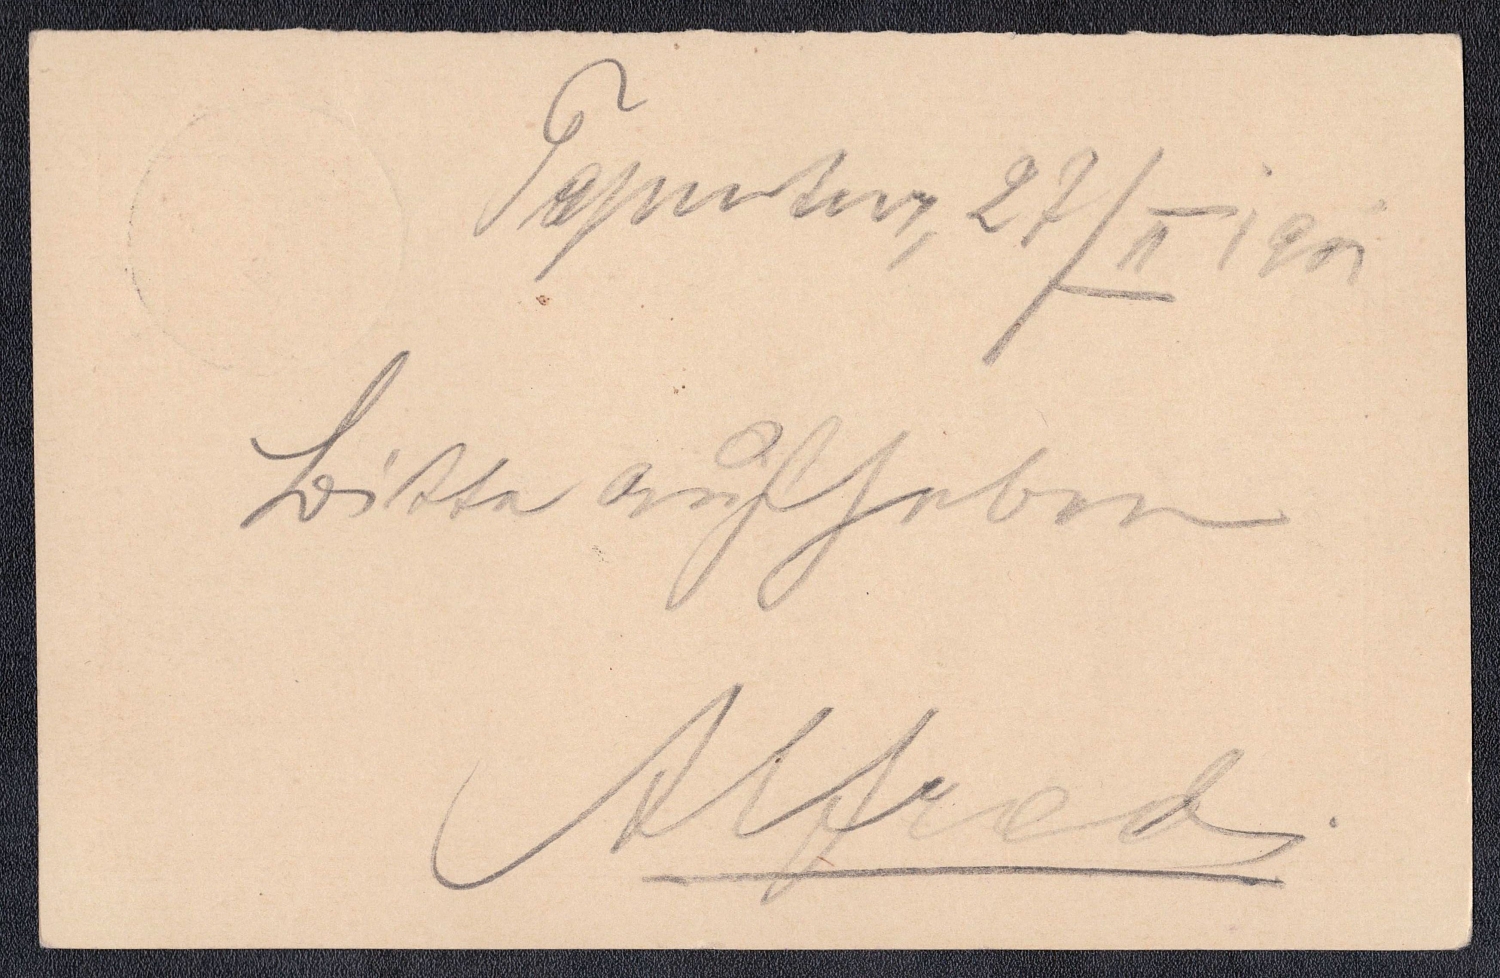 27/II 1901
Bitte aufheben
Alfred.